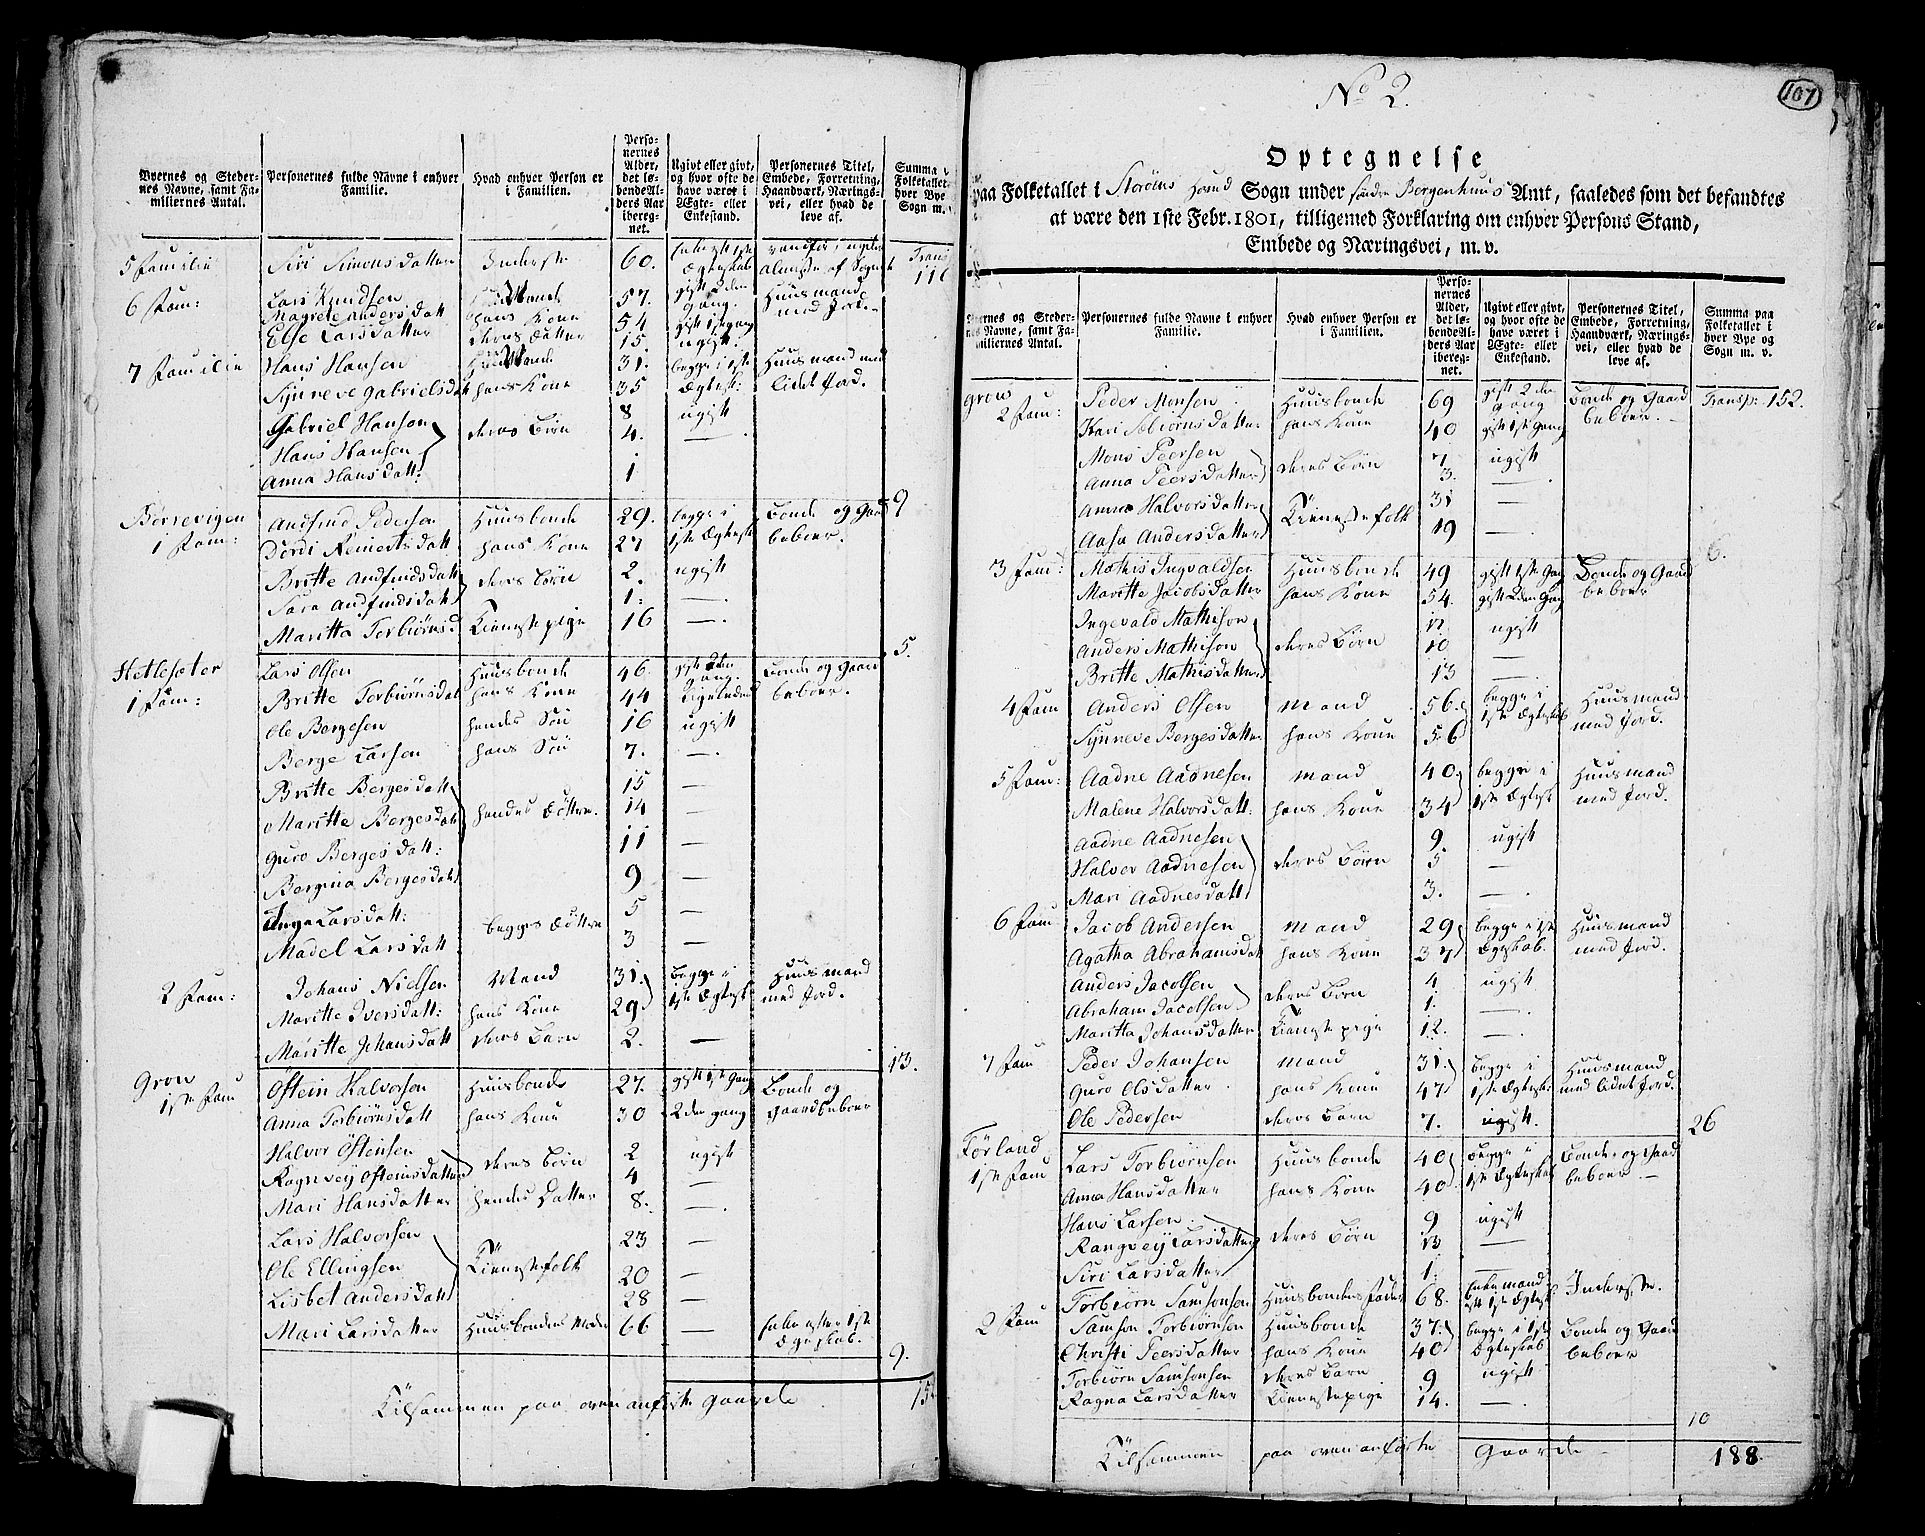 Byernes og Steder-
nes Navne, samt Fa-
miliernes Antal.
Personernes fulde Navne i enhver
Familie.
Hvad enhver Person er
i Familien.
Perso-
nernes
Alder,
det lø-
bende Al-
ders Aar
ibereg-
net.
Ugivt eller givt,
og hvor ofte de
have været i
Ægte- eller
Enkestand.
Personernes Titel,
Embede, Forretning,
Haandværk, Nærings-
vei, eller hvad de
leve af.
Summa
Folketallet
hver Bye
Sogn m.
5 Familie Siri Simonsdatter Inderste 60. Ægteskab almisse af Sogne Trans 116
6 Fam: Lars Knudsen 57. gift 2den gang. Huusmand med Jord.
Magrete Andersdatt hans Kone 54 gift 1ste gang
Else Larsdatter deres Datter 15. ugift.
7 Familie Hans Hansen 31. begge i 1ste Huusmand med
Synneve Gabrielsdat hans Kone 35 Ægtesk: lidet Jord.
Gabriel Hansen 8 ugift
Hans Hansen deres Börn 4. —
Anna Hansdatt: 1
9
Börrevigen Andfind Pedersen Huusbonde 29. begge i Bonde og Gaard
1 Fam: Dordi Reinertsdatt hans Kone 27 1ste Ægtesk beboer.
Britte Andfindsdatt deres Börn 2. ugift
Sara Andfindsdatt 1: —
Maritta Torbiörnsd Tienestepige 16 —
5.
Hetleseter Lars Olsen Huusbonde 46. gift 2den gang. Bonde og Gaard
1 Fam: Britte Torbiörnsdat hans Kone 44 Ligeledes beboer.
Ole Bergesen hendes Sön 16 ugift
Berge Larsen hans Sön 7. —
Britte Bergesdatt 15 —
Maritte Bergesdatt hendes Döttre. 14 —
Guro Bergesdatt: 11 —
Bergina Bergesdatt 9 —
Inga Larsdatt: begges Döttre 5 —
Madel Larsdatt 3 —
2 Fam: Johans Nielsen Mand 31. begge i Huusmand
Maritte Iversdatt: hans Kone 29 1ste Ægtesk med Jord.
Maritte Johansdatt deres Barn 2. —
13.
Grow Östein Halvorsen Huusbonde 27. gift 1ste Gang Bonde og
1ste Fam Anna Torbiörnsdatt hans Kone 30 2den gang Gaardbeboer
Halvor Östensen deres Börn 2 ugift
Ragnvey Östeinsdatter 4 —
Mari Hansdatter hendes Datter 8. —
Lars Halvorsen 23 —
Ole Ellingsen Tienestefolk 20 —
Lisbet Andersdatt 28 —
Mari Larsdatter Huusbondens Moder 66 — Enke efter 1ste Ægteskab.
9.
Tilsammen paa ovenanförte Gaarde 15
No 2.
107
Optegnelse
paa Folketallet i Storöens Sogn under söndre Bergenhuus Amt, saaledes som det befandtes
at være den 1ste Febr. 1801, tilligemed Forklaring om enhver Persons Stand,
Embede og Næringsvei, m. v.
Byernes og Steder-
nes Navne, samt Fa-
miliernes Antal.
Personernes fulde Navne i enhver
Familie.
Hvad enhver Person er
i Familien.
Perso-
nernes
Alder,
det lø-
bende Al-
ders Aar
ibereg-
net.
Ugivt eller givt,
og hvor ofte de
have været i
Ægte- eller
Enkestand.
Personernes Titel,
Embede, Forretning,
Haandværk, Nærings-
vei, eller hvad de
leve af.
Summa paa
Folketallet i
hver Bye og
Sogn m. v.
Grow Peder Monsen Huusbonde 69 gift 2den gang Bonde og Gaard Transp: 152.
2 Fam: Kari Asbiörnsdatter hans Kone 40 gift 1ste Gang beboer.
Mons Peersen deres Börn 7 ugift
Anna Peersdatter 3. —
Anna Halvorsdatter Tienestefolk 31 —
Aasa Andersdatter 19 —
6.
3 Fam: Mathis Ingvaldsen Huusbonde 49 gift 1ste Gang Bonde og Gaard
Maritte Jacobsdatter hans Kone 54. gift 2den Gang beboer
Ingevald Mathison 12 ugift
Anders Mathison deres Börn 10
Britte Mathisdatter 13 —
4 Fam Anders Olsen Mand 56. begge i Huusmand
Synneve Bergesdatter hans Kone 56 1ste Ægteskab med Jord.
5 Fam: Aadne Aadnesen Mand 40. begge i Huusmand
Malene Halvorsdatt: hans Kone 34 1ste Ægtesk med Jord.
Aadne Aadnesen 9. ugift
Halvor Aadnesen deres Börn 5 —
Mari Aadnesdatt 3. —
6 Fam Jacob Andersen Mand 29 begge i 1ste Huusmand
Agatha Abrahamsdat hans Kone 37 Ægteskab. med Jord.
Anders Jacobsen 4 ugift
Abraham Jacobsen deres Börn 1. —
Maritta Johansdatter Tienestepige 12. —
7 Fam Peder Johansen Mand 31. begge i Huusmand
Guro Olsdatter hans Kone 47 1ste Ægtesk: med lidet Jord.
Ole Pedersen deres Barn 7. ugift.
26
Förland Lars Torbiörnsen Huusbonde 40 begge i Bonde og Gaard
1ste Fam Anna Hansdatter hans Kone 40 1ste Ægteskab beboer —
Hans Larsen 9 ugift
Rangvey Larsdatter deres Börn —
Siri Larsdatter 1. —
Torbiörn Samsonsen Huusbondens Fader 68. Enkemand 1ste Ægtesk Inderste.
2 Fam Samson Torbiörnsen Huusbonde 37. begge i 1ste Bonde og Gaard
Christi Peersdatter hans Kone 40 Ægteskab beboer
Torbiörn Samsonsen deres Barn 9 ugift
Ragna Larsdatter Tienestepige 14. —
10
Tilsammen paa ovenanförte Gaarde 188.